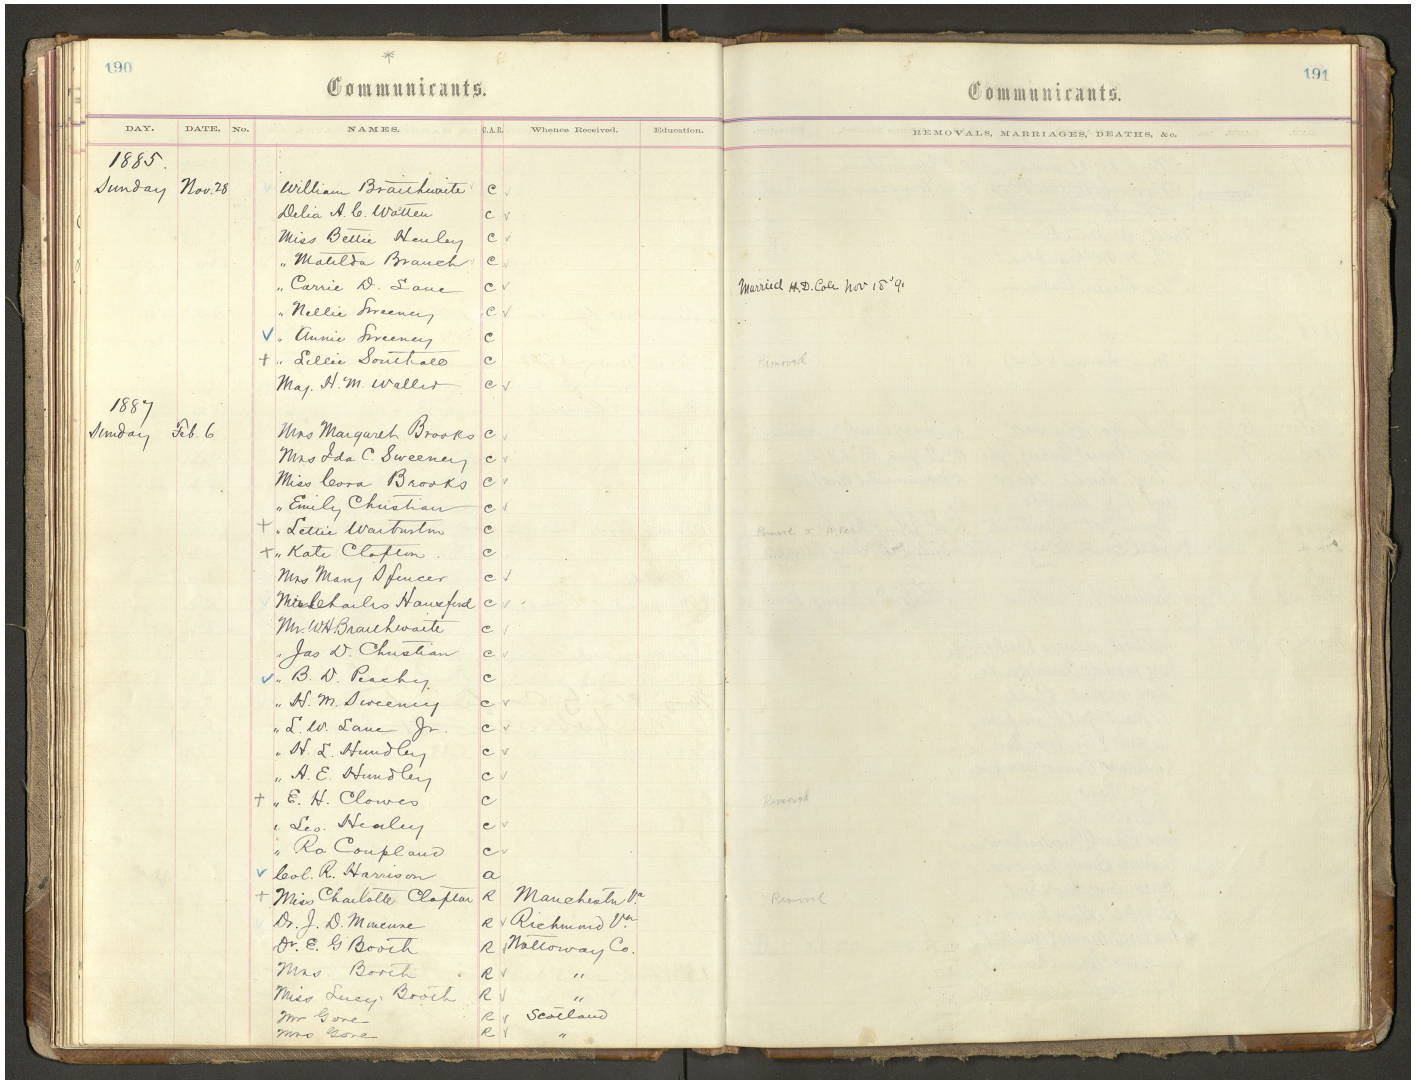 190
*
Communicants.
DAY. DATE. No. NAMES. C.A.R. Whence Received. Education.
1885.
Sunday Nov. 28 William Braithwaite C
Delia A. C. Watten C
Miss Bettie Henley C
" Matilda Branch C
" Carrie D. Lane C
" Nellie Sweeney C
✓ " Annie Sweeney C
+ " Lillie Southall C
Maj. H. M. Waller C
1887
Sunday Feb. 6 Mrs Margaret Brooks C
Mrs Ida C. Sweeney C
Miss Cora Brooks C
" Emily Christian C
+ " Lettie Warburton C
+ " Kate Clopton C
Mrs Mary Spencer C
Charles Hansford C
Mr. W H Braithwaite C
" Jas D. Christian C
✓ " B. D. Peachy C
" H. M. Sweeney C
" L. W. Lane Jr. C
" H. L. Hundley C
" A. E. Hundley C
+ " E. H. Clowes C
" Geo. Henley C
" Ro Coupland C
✓ Col. R. Harrison a
+ Miss Charlotte Clopton R Manchester Va
Dr. J. D. Moncure R Richmond Va.
Dr. E. G Booth R Nottoway Co.
Mrs Booth R "
Miss Lucy Booth R "
Mr Gore R Scotland
Mrs Gore R "
191
Communicants.
REMOVALS, MARRIAGES, DEATHS, &c.
Married H. D. Cole Nov 18 '91
Removed
Removed
Removed
Removed